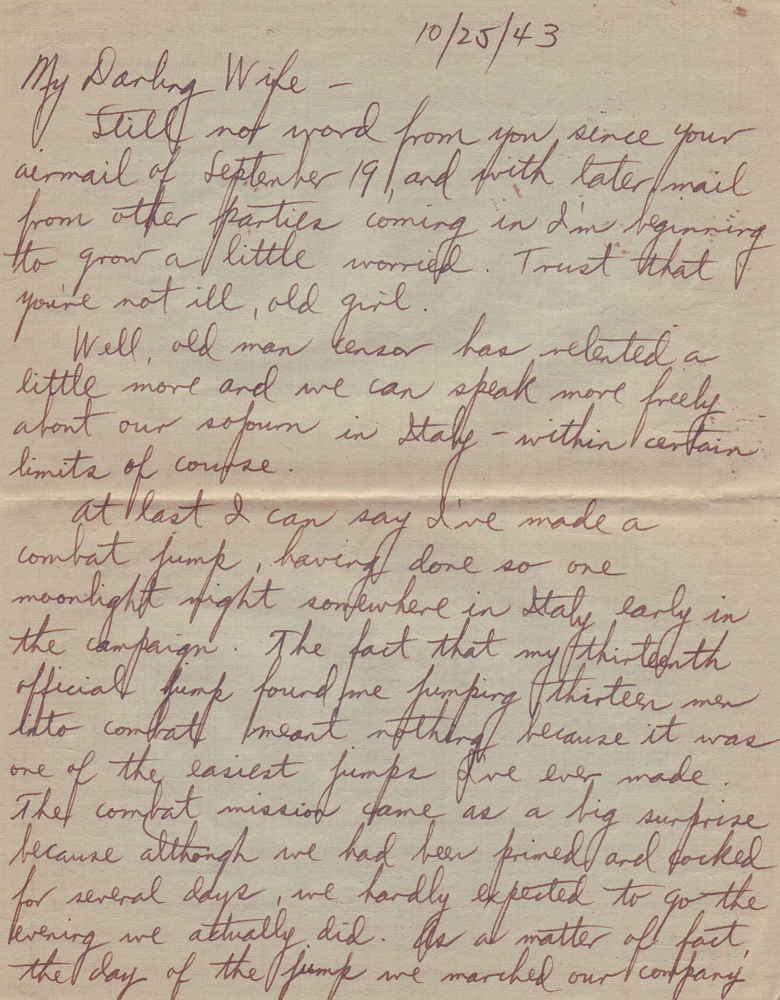 10/25/43
My Darling Wife —
Still no word from you since your
airmail of September 19, and with later mail
from other parties coming in I'm beginning
to grow a little worried. Trust that
you're not ill, old girl.
Well, old man censor has relented a
little more and we can speak more freely
about our sojourn in Italy — within certain
limits of course.
At last I can say I've made a
combat jump, having done so one
moonlight night somewhere in Italy early in
the campaign. The fact that my thirteenth
official jump found me jumping thirteen men
into combat meant nothing because it was
one of the easiest jumps I've ever made.
The combat mission came as a big surprise
because although we had been primed and cocked
for several days, we hardly expected to go the
evening we actually did. As a matter of fact,
the day of the jump we marched our company